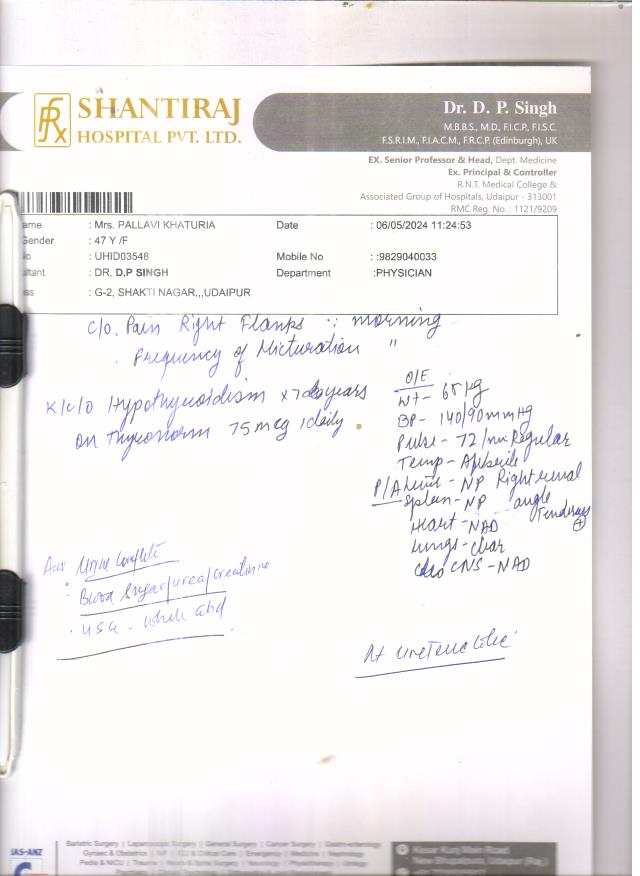 SHANTIRAJ
HOSPITAL PVT. LTD.
Dr. D. P. Singh
M.B.B.S., M.D., F.I.C.P., F.I.S.C.
F.S.R.I.M., F.I.A.C.M., F.R.C.P. (Edinburgh), UK
EX. Senior Professor & Head, Dept. Medicine
Ex. Principal & Controller
R.N.T. Medical College &
Associated Group of Hospitals, Udaipur - 313001
RMC Reg. No. : 1121/9209
ame : Mrs. PALLAVI KHATURIA Date : 06/05/2024 11:24:53
Gender : 47 Y /F
o : UHID03548 Mobile No : :9829040033
ltant : DR. D.P SINGH Department :PHYSICIAN
ss : G-2, SHAKTI NAGAR,,,UDAIPUR
c/o. Pain Right Flanks ∵ morning
. Frequency of Micturation "
K/c/o Hypothyroidism x years
on Thyronorm 75 mcg 1daily
O/E
Wt - 68 kg
BP - 140/90 mmHg
Pulse - 72/mn Regular
Temp - Afebrile
P/A - NP Right renal
Spleen - NP angle
Tenderness +
Heart - NAD
Lungs - clear
CNS - NAD
Urine Complete
Blood Sugar/Urea/Creatinine
. USG - Whole abd
Rt Ureteric Colic
IAS-ANZ
Bariatric Surgery | Laparoscopic Surgery | General Surgery | Cancer Surgery | Gastro-enterology
Gynaec & Obstetrics | IVF | ICU & Critical Care | Emergency | Medicine | Nephrology
Pedia & NICU | Trauma | Neuro & Spine Surgery | Neurology | Physiotherapy | Urology
Kesar Kunj Main Road,
New Bhupalpura, Udaipur (Raj.)